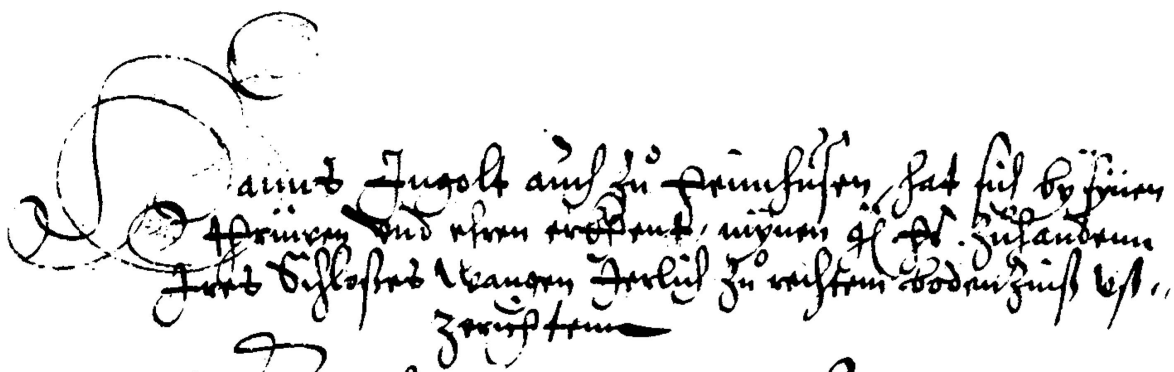 Hanns Ingolt auch zu Heimhusen, hat sich by synen
thrüwen Und ehren erkhent, mynen g h. zuhandenn
Ires Schlosses Wangen Jerlich zu rechtem bodenzinß uß„
zerichtenn